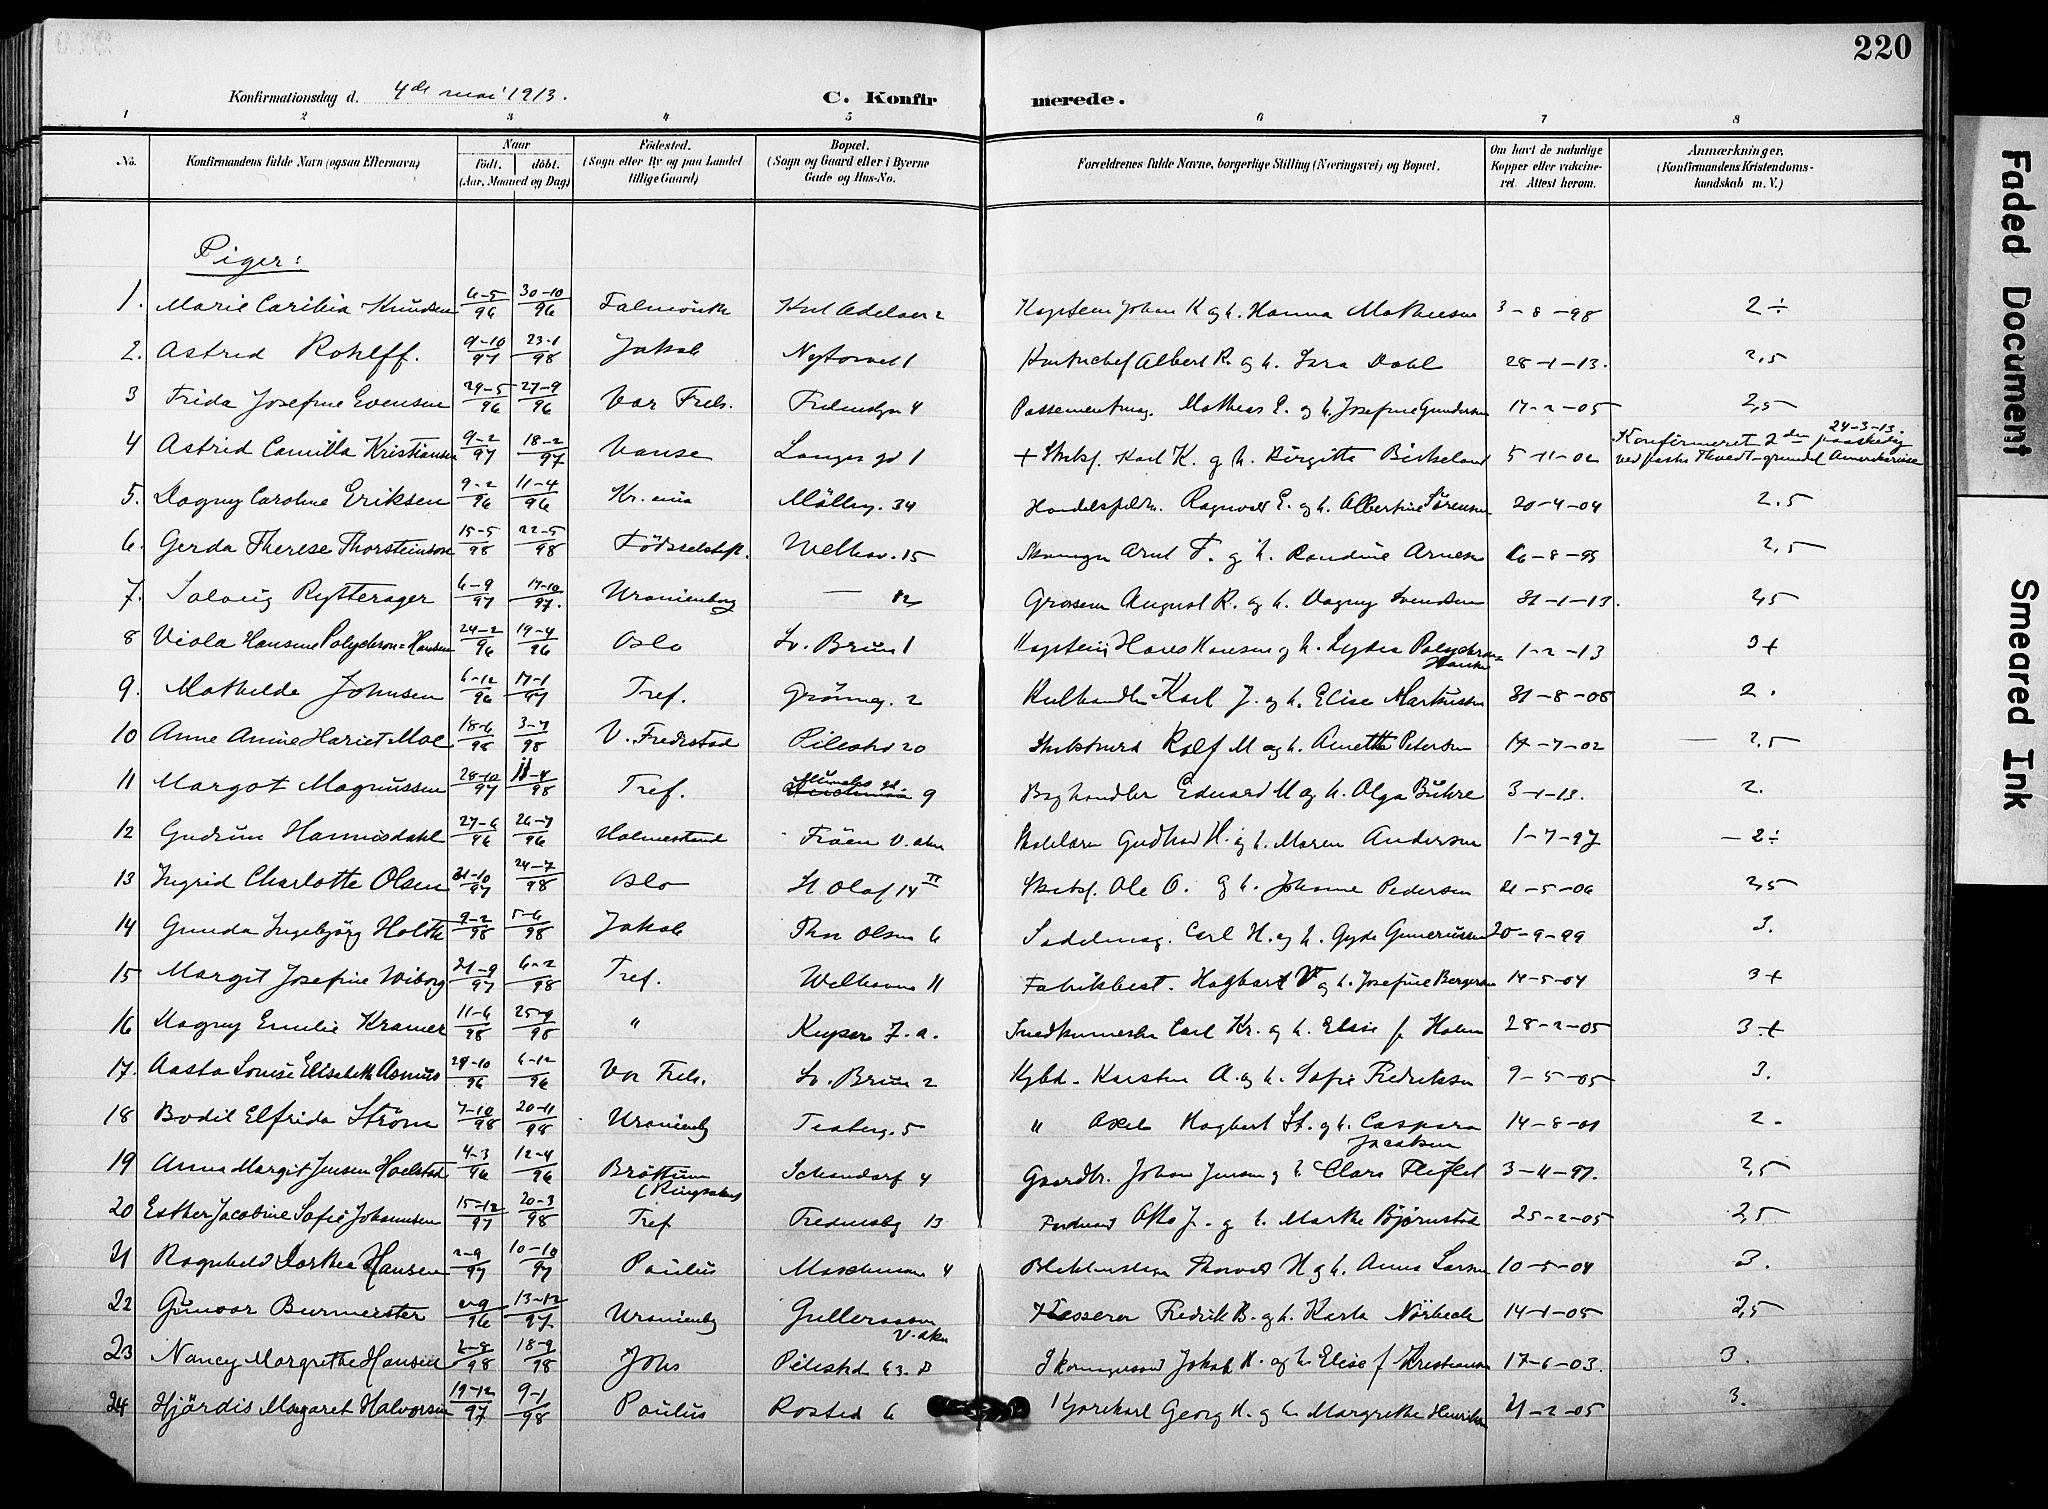 220
Konfirmationsdag d. 4de mai 1913.
C. Konfirmerede.
1 2 3 4 5 6 7 8
No. Konfirmandens fulde Navn (ogsaa Efternavn) Naar født. døbt. (Aar, Maaned og Dag) Födested. (Sogn eller By og paa Landet tillige Gaard) Bopæl. (Sogn og Gaard eller i Byerne Gade og Hus-No. Forældrenes fulde Navne, borgerlige Stilling (Næringsvei) og Bopæl. Om havt de naturlige Kopper eller vakcineret. Attest herom. Anmærkninger, (Konfirmandens Kristendomskundskab m. V.)
Piger:
1. Marie Knudsen 6-5/96 30-10/96 2 Kaptein Johan K og h. Hanna Mathiesen 3-8-98 2÷
2. Astrid Rohlff. 9-10/97 23-1/98 Jakob Nytorvet 1 Albert R. og h. Sara Dahl 28-1-13. 2,5
3 Frida Josefine Evensen 29-5/96 27-9/96 Vor Frels. 4 Mathias E. og h. Josefine Gundersen 17-2-05 2,5
4 Astrid Camilla Kristiansen 9-2/97 18-2/97 Vanse Langes gd 1 + Skibsf. Karl K. og h. Birgitte Birkeland 5-11-02 Konfirmeret 2den paaskedag 24-3-13.
5. Dagny Caroline Eriksen 9-2/96 11-4/96 Kr.ania Mölleg. 34 Ragnvald E. og h. Albertine Sørensen 20-4-04 2.5
6. Gerda Therese Thorsteinson 15-5/98 22-5/98 Födselsstift. Welhav. 15 Arnt T. og h. Randine Arnesen 2,5
7. Solveig Rytterager 6-9/97 17-10/97. Uranienborg — 12 Grosserer August R. og h. Dagny Svendsen 31-1-13. 2,5
8 Viola Hansine Polychron=Hansen 24-2/96 19-4/96 Oslo Sv. Brun 1 Kaptein Hans Hansen og h. Lydia Polychron=Hansen 1-2-13 3+
9. Mathilde Johnsen 6-12/96 17-1/97 Tref. Grönneg. 2 Kulhandler Karl J. og h. Elise Markussen 31-8-05 2.
10 Anne Amine Hariet Moe 18-6/98 3-7/98 V. Fredrstad Pilestrd 20 Rolf M og h. Anette Petersen 17-7-02 — 2,5
11 Margot Magnussen 28-10/97 11-4/98 Tref. 9 Boghandler Eduard M og h. Olga Buhre 3-1-13. 2.
12 Gudrun Hannisdahl 27-6/96 26-7/96 Holmestrand Fröen V. aker Skolelærer H. og h. Maren Andersen 1-7-97 —2÷
13 Ingrid Charlotte Olsen 31-10/97 24-7/98 Oslo St. Olaf 14 II Skibsf. Ole O. og h. Johanne Pedersen 21-5-06 2,5
14 Gunda Ingebjørg Holth 9-2/98 5-6/98 Jakob Thor Olsen 6 Sadelmag. Carl H. og h. Gyda Gunerussen 20-9-99 3.
15 Margit Josefine Wiborg 21-9/97 6-2/98 Tref. Welhavens 11 Fabrikbest. Hagbart W og h. Josefine Bergersen 14-5-04 3+
16 Dagny Emilie Kramer 11-6/98 25-9/98 " Keyser 7. a. Snedkermester Carl Kr. og h. Elise f. Holm 28-2-05 3.+
17. Aasta Louise Elisabeth Asmus 29-10/96 6-12/96 Vor Frels. Sv. Brun 2 Kybd. Karsten A. og h. Sofie Fredriksen 9-5-05 3.
18 Bodil Elfrida Ström 7-10/98 20-11/98 Uranienbg Teaterg. 5 " Axel Hagbert St. og h. Caspara Jacobsen 14-8-01 2.
19 Anna Margit Jensen Hoelstad 4-3/96 12-4/96 Bröttum (Ringsaker) Schandorf 4 Gaardbr. Johan Jensen og h. Clara 3-11-97. 2,5
20 Esther Jacobine Sofie Johannsen 15-12/97 20-3/98 Tref Fredensbg 13 Otto J. og h. Marthe Bjørnstad 25-2-05 2,5
21 Ragnhild Dorthea Hansen 2-9/97 10-10/97 Paulus Maschman 4 Thorvald H og h. Anna Larsen 10-5-04 3.
22 Gunvor Burmeister 13-12/97. Uranienbg V. aker Fredrik B. og h. Karla Nörbech 14-1-05 2,5
23 Nancy Margrethe Hansen 2-8/98 18-9/98 Johs Pilestrd 63. Jakob H. og h. Elise f. Kristiansen 17-6-03. 3.
24 Hjördis Margaret Halvorsen 19-12/97 9-1/98 Paulus Rosted 6 Kjørekarl Georg H. og h. Margrethe Henriksen 21-2-05 3.
Faded Document
Smeared Ink